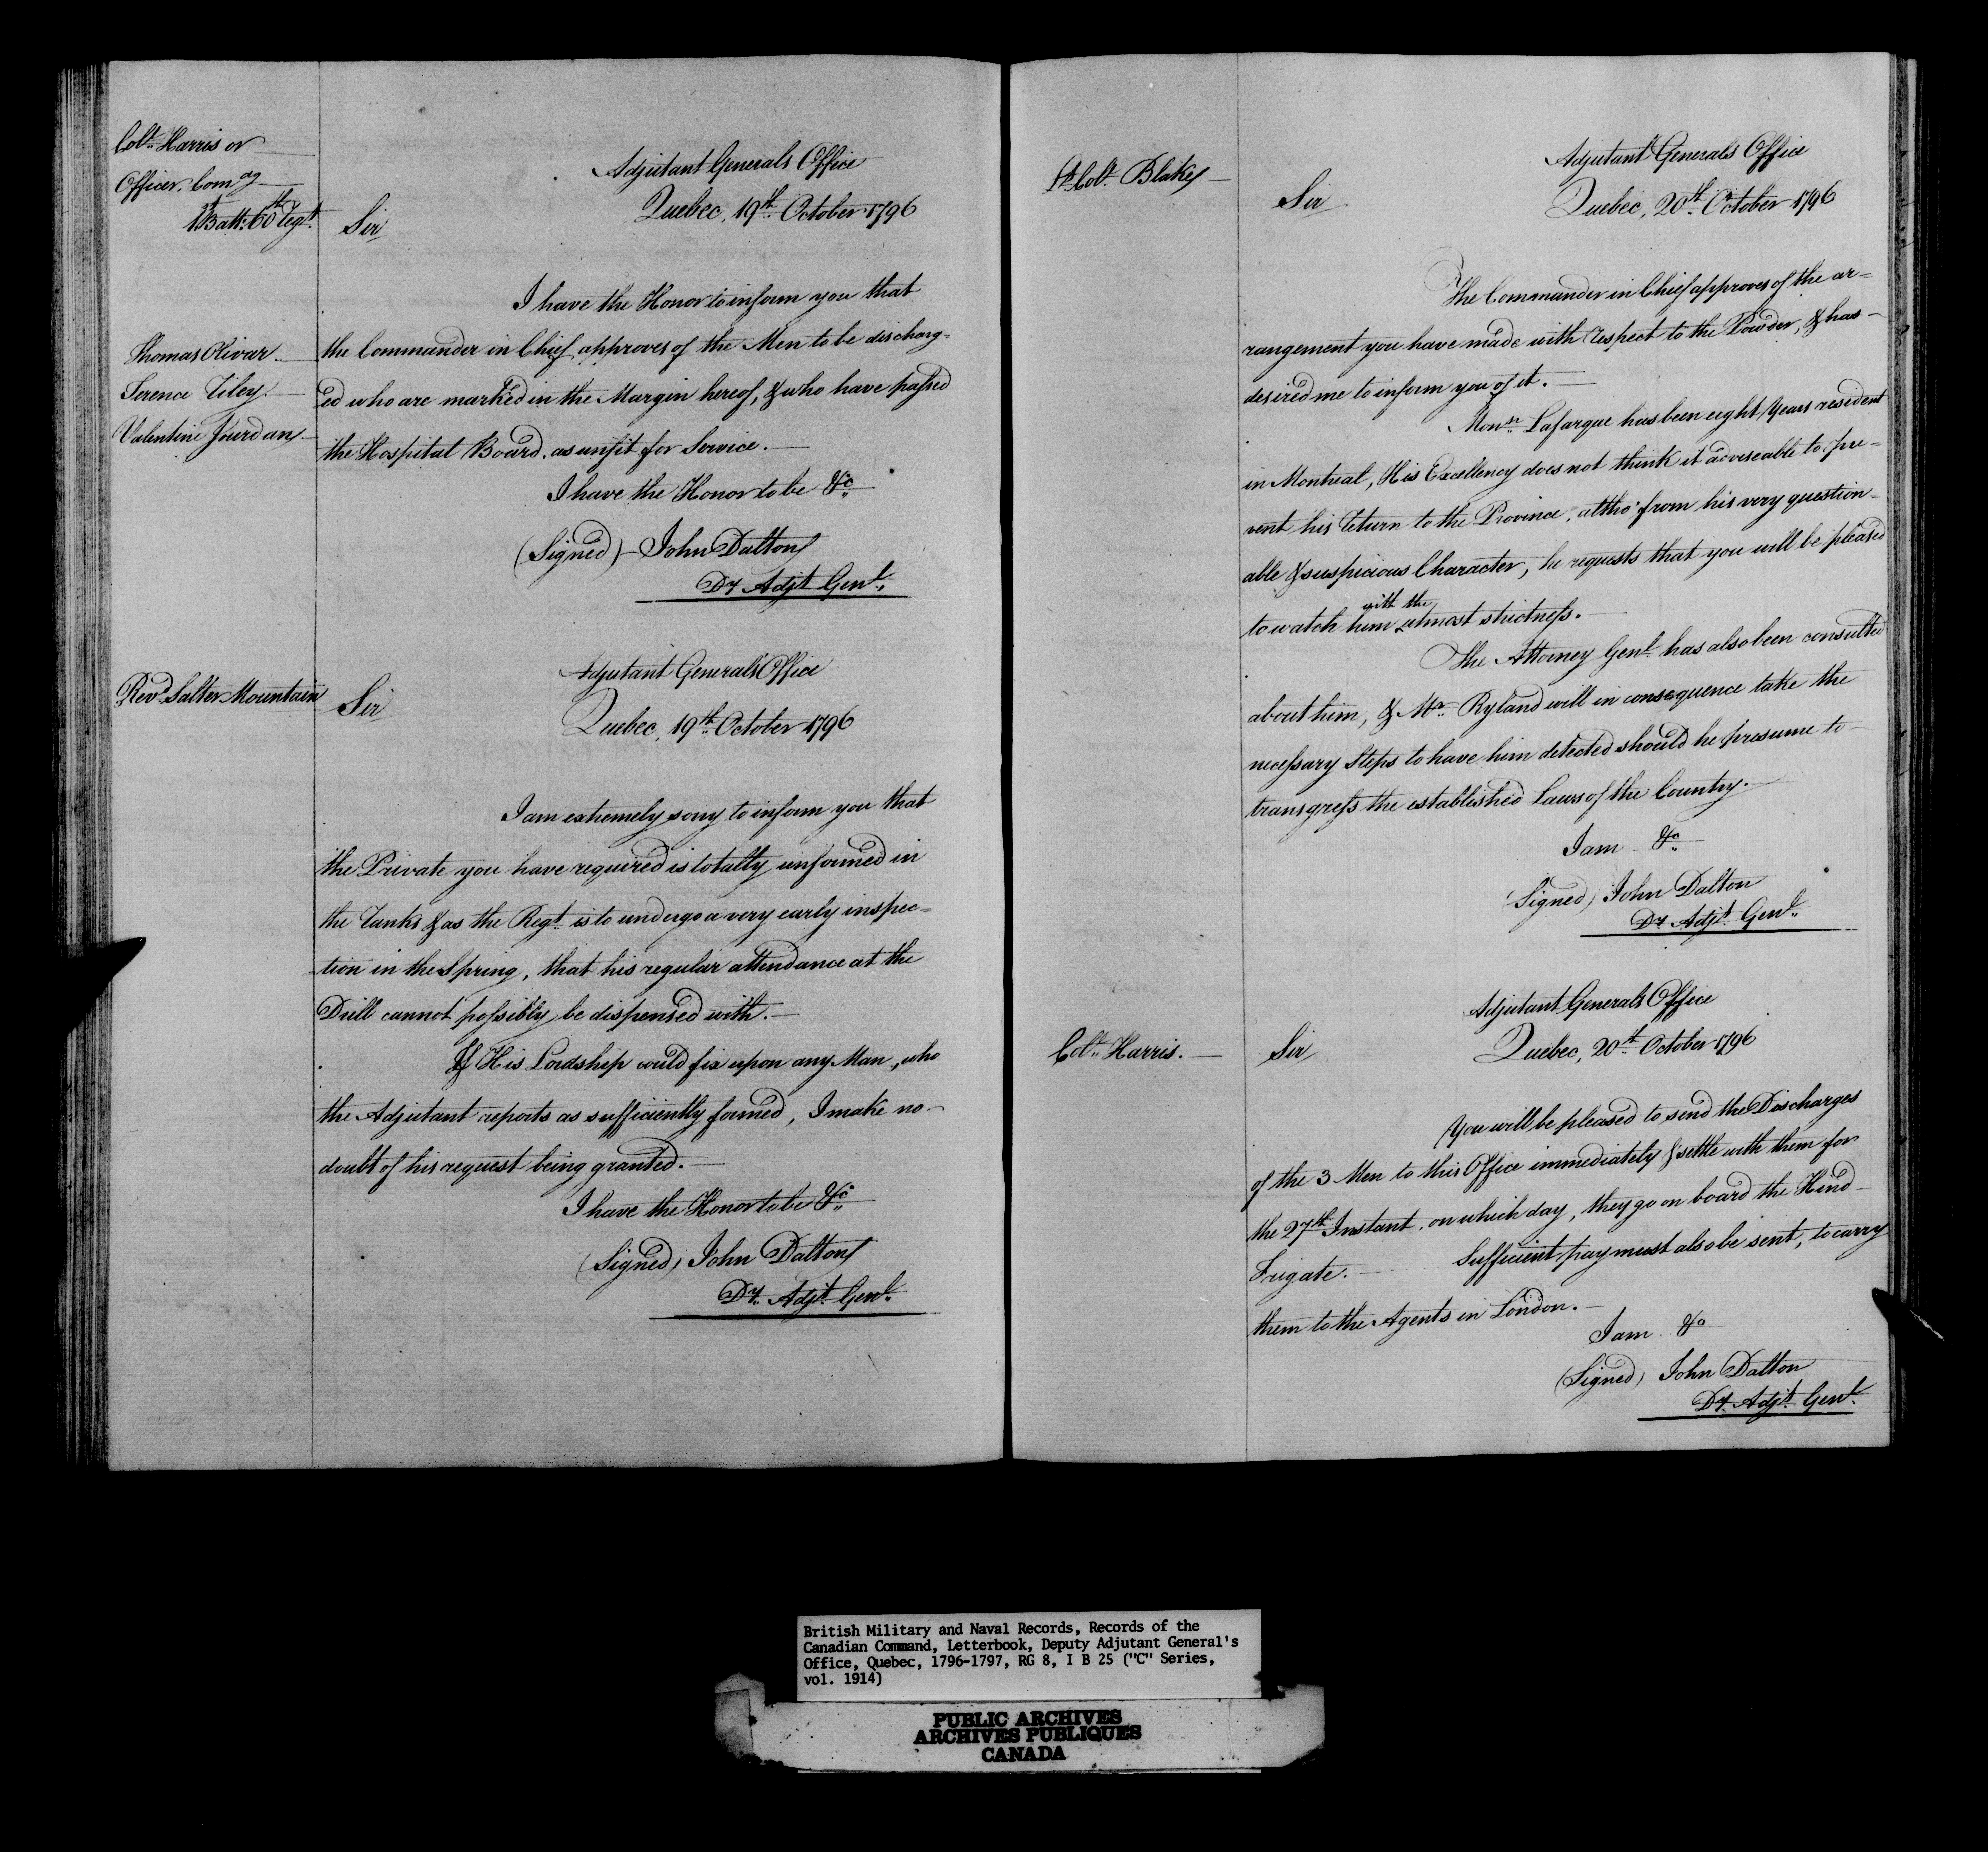 Colº. Harris or
Officer Comᵍ
1ˢᵗ Batt: 60ᵗʰ Regᵗ.
Adjutant Generals Office
Quebec, 19ᵗʰ October 1796
Sir
I have the Honor to inform you that
the Commander in Chief approves of the Men to be discharg-
ed who are marked in the Margin hereof, & who have passed
the Hospital Board, as unfit for Service.—
Thomas Olivar
Terence Tiley
Valentine Jourdan
I have the Honor to be &c
(Signed) — John Dalton
Dy Adjt Genl.
Revd. Salter Mountain
Adjutant Generals Office
Quebec, 19th October 1796
Sir
I am extremely sorry to inform you that
the Private you have required is totally uninformed in
the Ranks & as the Regt. is to undergo a very early inspec=
tion in the Spring, that his regular attendance at the
Drill cannot possibly be dispensed with.—
If His Lordship could fix upon any Man, who
the Adjutant reports as sufficiently formed, I make no
doubt of his request being granted.—
I have the Honor to be &c
(Signed) John Dalton
Dy. Adjt. Genl.
Lt. Colo. Blake
Adjutant Generals Office
Quebec, 20th October 1796
Sir
The Commander in Chief approves of the ar=
rangement you have made with respect to the Powder, & has
desired me to inform you of it.—
Monsr. Lafarque has been eight Years resident
in Montreal, His Excellency does not think it adviseable to pre=
vent his return to the Province, altho' from his very question-
able & suspicious Character, he requests that you will be pleased
to watch him with the utmost strictness.—
The Attorney Genl. has also been consulted
about him, & Mr. Ryland will in consequence take the
necessary Steps to have him detected should he presume to
transgress the established Laws of the Country.—
I am &c
(Signed) John Dalton
Dy. Adjt. Genl.
Colo. Harris.—
Adjutant Generals Office
Quebec, 20th October 1796
Sir
You will be pleased to send the Discharges
of the 3 Men to this Office immediately & settle with them for
the 27th Instant, on which day, they go on board the Hind
Frigate.— Sufficient pay must also be sent, to carry
them to the Agents in London.—
I am &c
(Signed) John Dalton
Dy. Adjt. Genl.
British Military and Naval Records, Records of the
Canadian Command, Letterbook, Deputy Adjutant General's
Office, Quebec, 1796-1797, RG 8, I B 25 ("C" Series,
vol. 1914)
PUBLIC ARCHIVES
ARCHIVES PUBLIQUES
CANADA